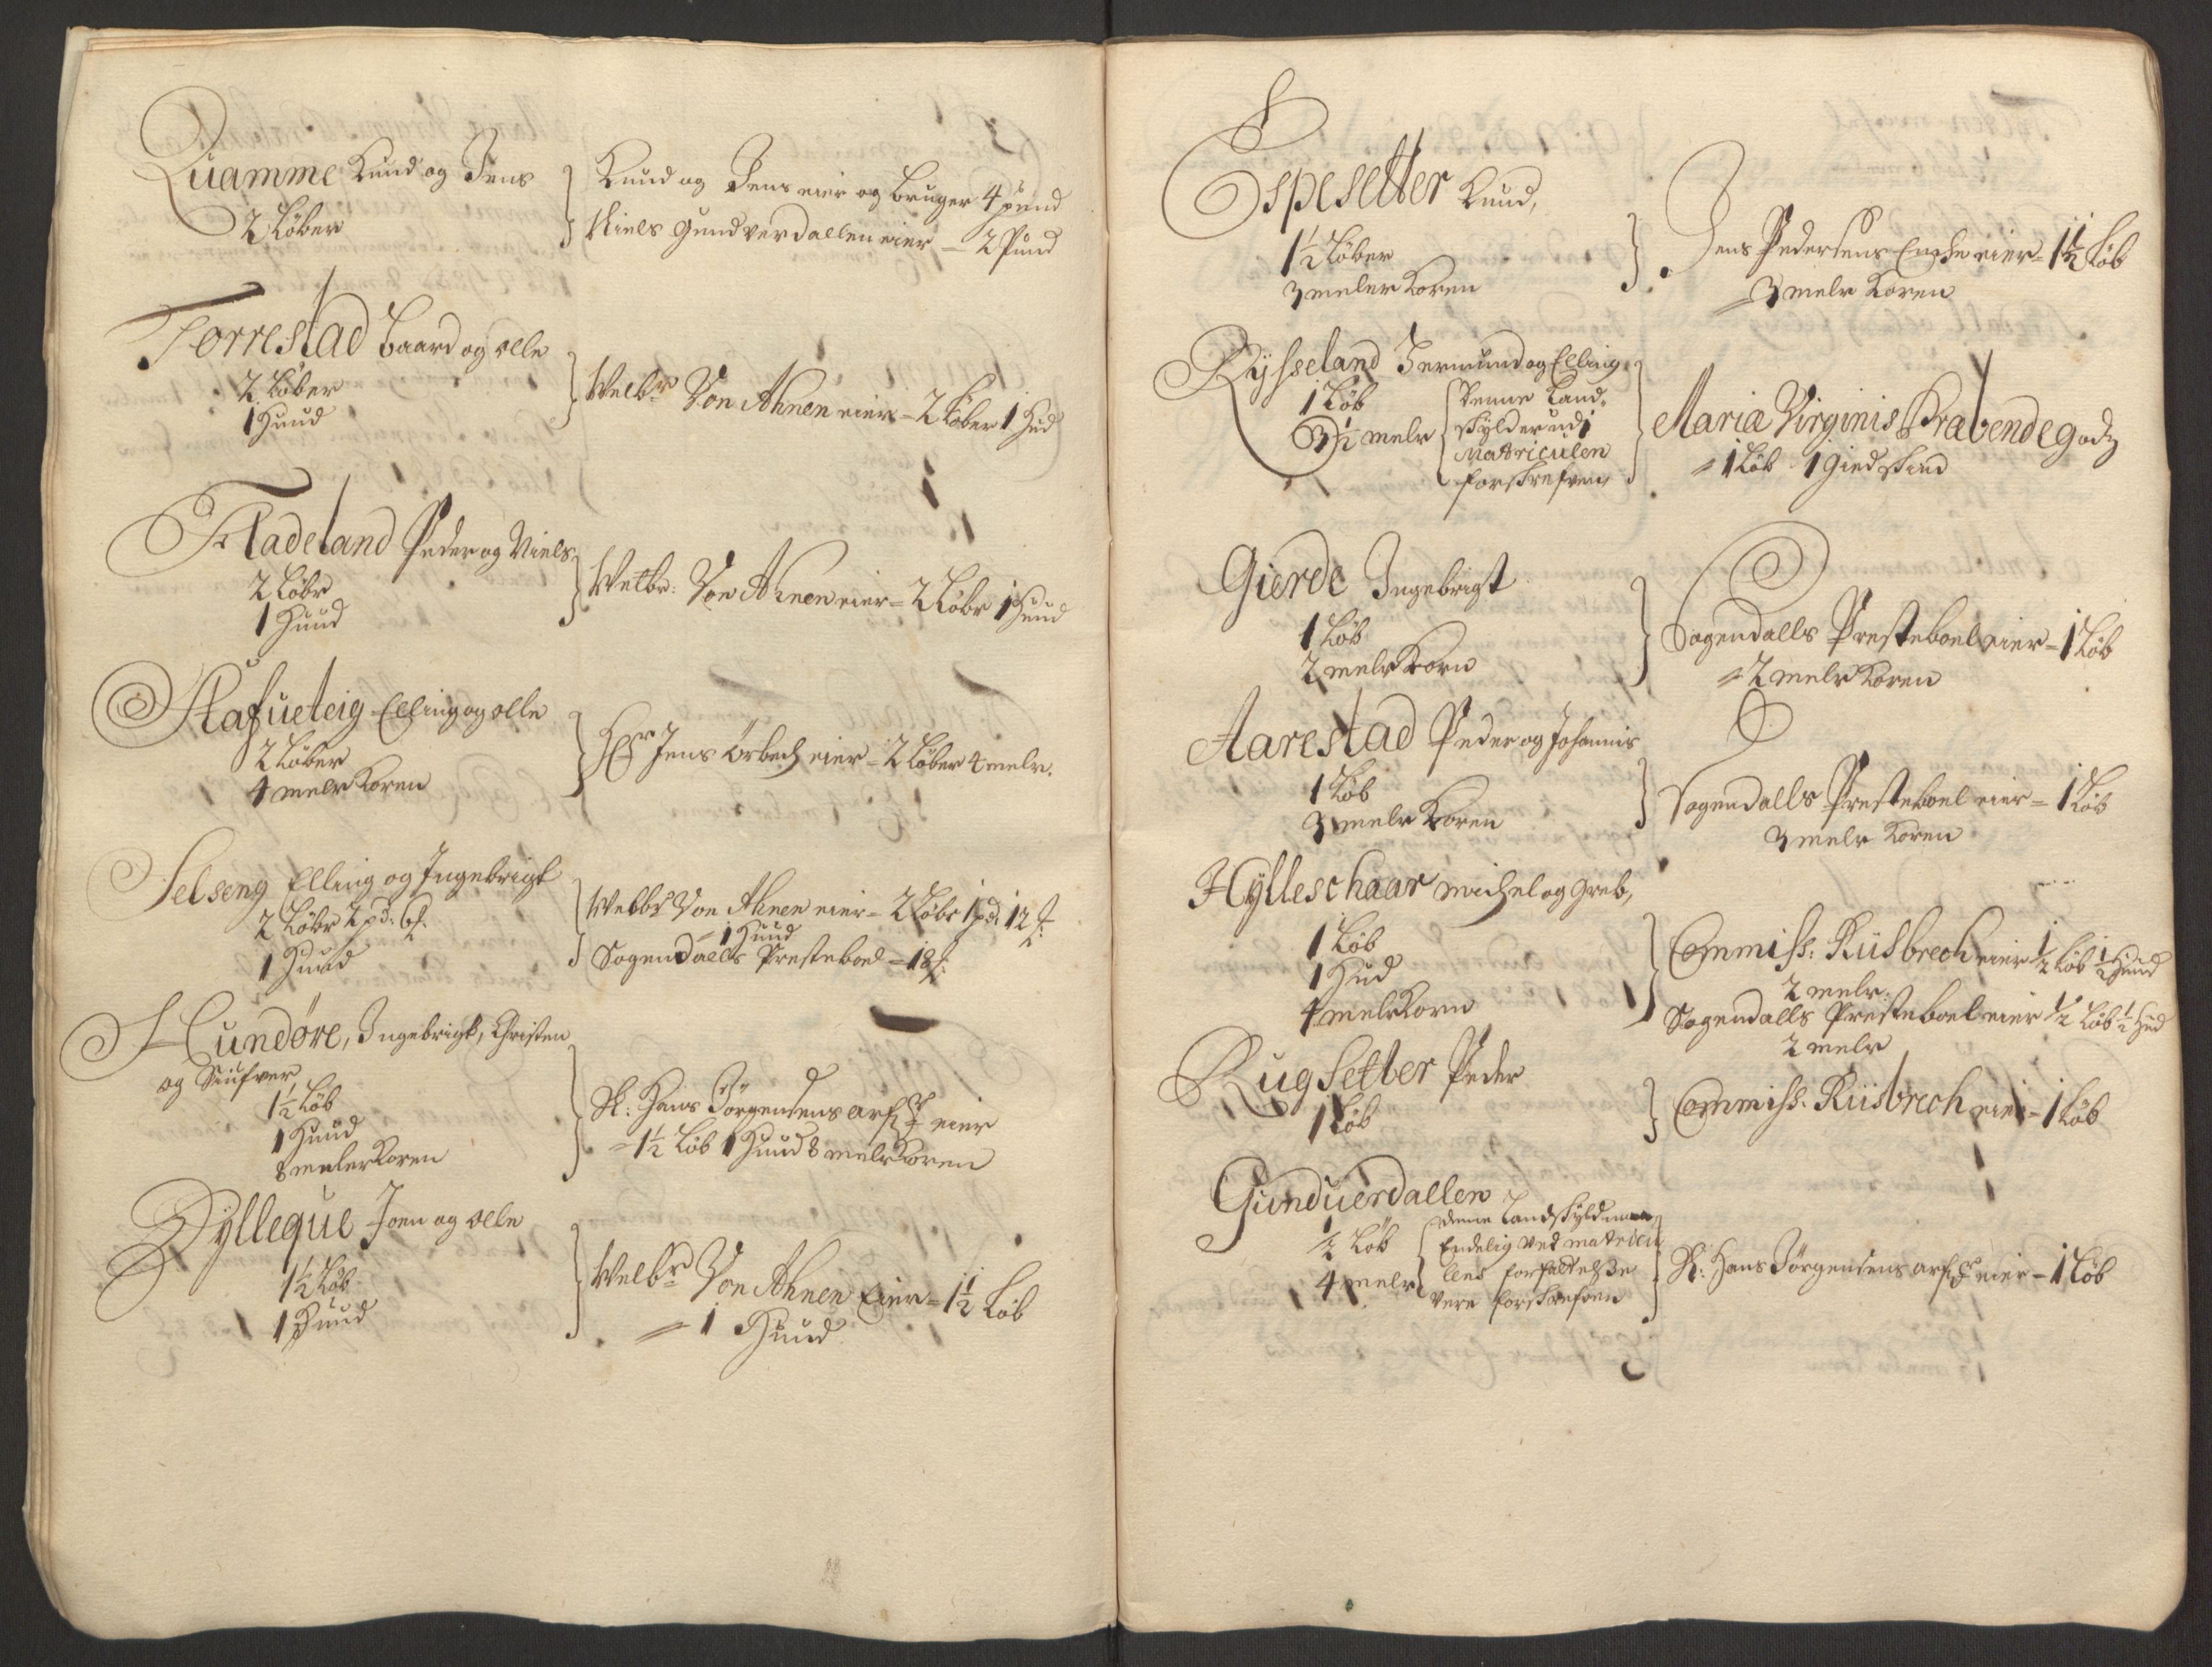 Quamme Knud og Jens
2 Løber
Knud og Jens eier og bruger 4 pund
Niels Gundverdallen eier = 2 Pund
Torrestad Baard og olle
2 Løber
1 Huud
Welbr Von Ahnen eier = 2 Løber 1 Hud
Fladeland Peder og Niels
2 Løbr
1 Huud
Welbr: Von Ahnen eier = 2 Løbr 1 Huud
Hafueteig Elling og olle
2 Løber
4 melr Koren
Hr Jens Ørbech eier = 2 Løber 4 melr.
Selseng Elling og Ingebrigt
2 Løbr 2 pd: 6
1 Huud
Welbr Von Ahnen eier = 2 Løbr 1 pd. 12
= 1 Huud
Sogendalls Presteboel = 18
Hundøre, Ingebrigt, Christen
og Siufver
1½ Løb
1 Huud
8 meler Koren
Sl: Hans Jørgensens arf: eier
= 1½ Løb 1 Huud 8 melr Koren
Dylleque Joen og olle
1½ Løb
1 Huud
Welbr Von Ahnen Eier = 1½ Løb
= 1 Huud
Espesetter Knud,
1½ Løber
3 meler Koren
Jens Pedersens Enche eier = 1½ Løb
= 3 melr Koren
Rysseland Jermund og Elling
1 Løb
3½ melr
Denne Land-
skylder udj
Matriculen
forskrefven
Maria Virginis Præbende godz
= 1 Løb 1 Giedskind
Gierde Ingebrigt
1 Løb
2 melr Korn
Sogendalls Presteboel eier = 1 Løb
= 2 melr Koren
Aarestad Peder og Johannis
1 Løb
3 melr Koren
Sogendalls Presteboel eier = 1 Løb
3 melr Koren
Hylleschaar michel og Greb,
1 Løb
1 Hud
4 melr Korn
Commiss: Riisbrech eier ½ Løb ½ Huud
2 melr.
Sogendalls Presteboel eier ½ Løb ½ Hud
2 melr
Rugsetter Peder
1 Løb
Commiss. Riisbrech eier = 1 Løb
Gunduerdallen
½ Løb
4 melr
denne Landskyld
Endelig ved matricu
lens forfattelsse
vere forskrefven
Sl: Hans Jørgensens arf: eier = 1 Løb